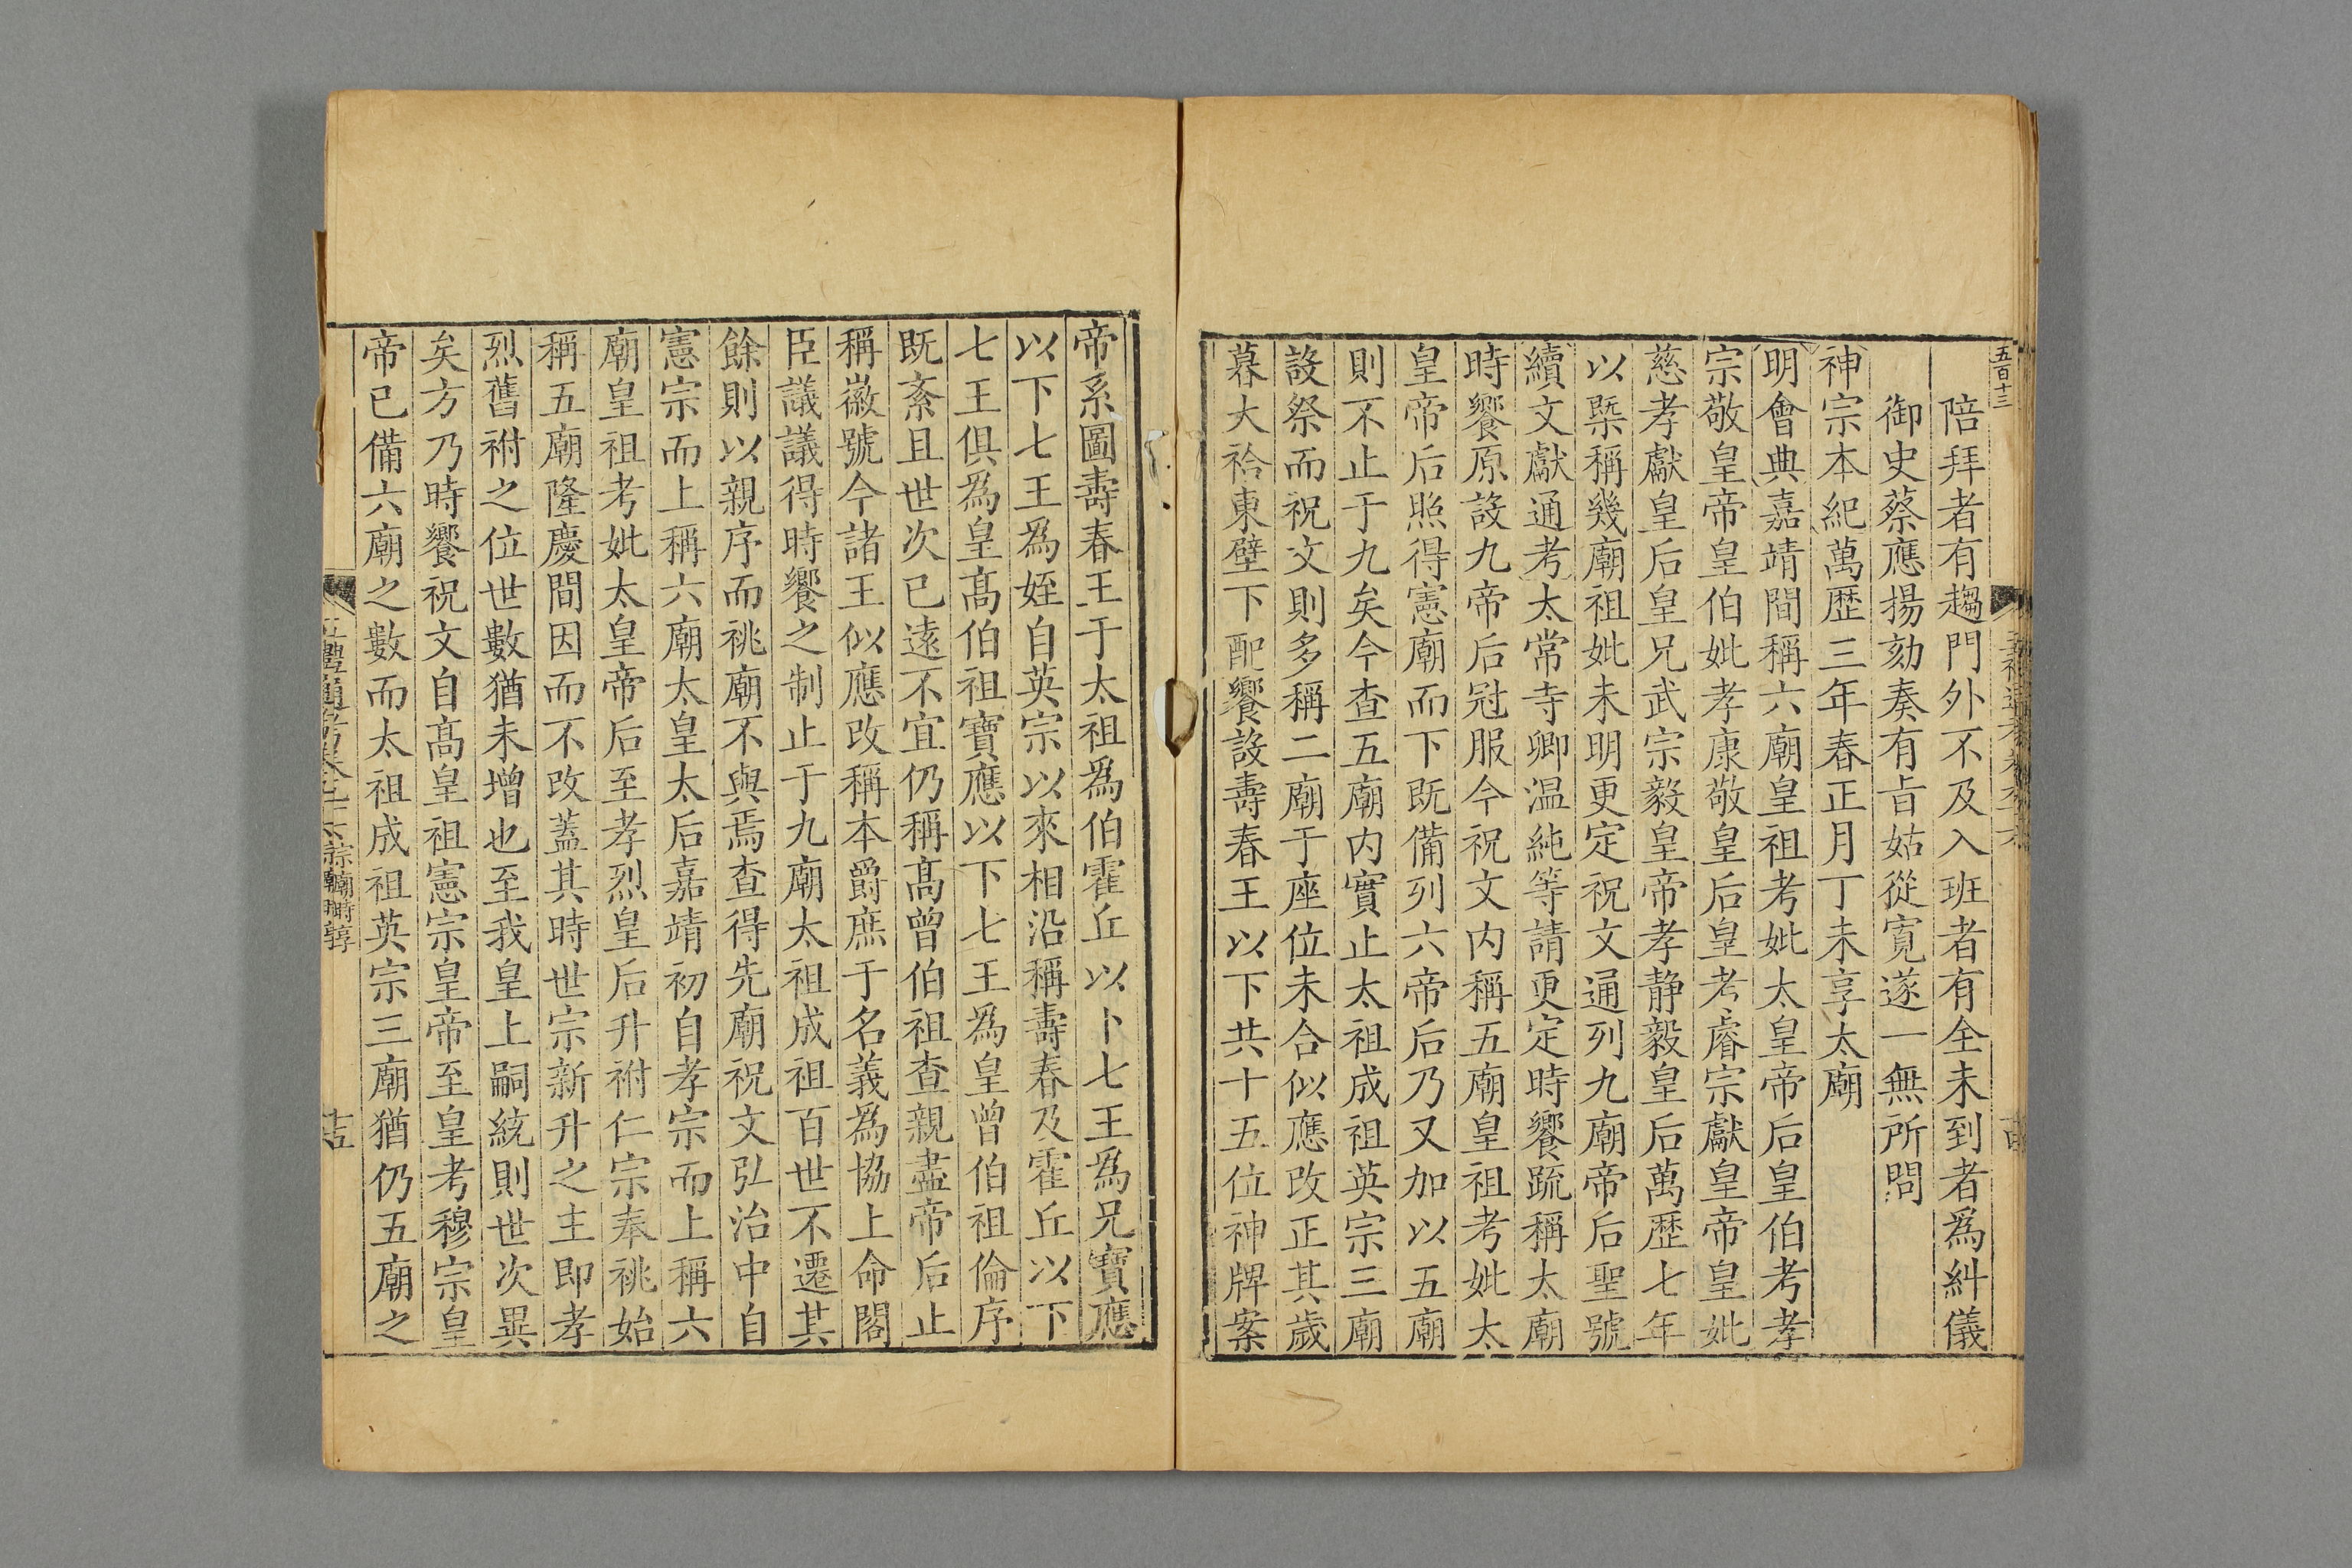 五百十三
陪拜者有趨門外不及入班者有全未到者爲糾儀
御史蔡應揚劾奏有旨姑從寬遂一無所問
神宗本紀萬歷三年春正月丁未享太廟
明會典嘉靖間稱六廟皇祖考妣太皇帝后皇伯考孝
宗敬皇帝皇伯妣孝康敬皇后皇考睿宗獻皇帝皇妣
慈孝獻皇后皇兄武宗毅皇帝孝静毅皇后萬歷七年
以槩稱幾廟祖妣未明更定祝文通列九廟帝后聖號
續文獻通考太常寺卿温純等請更定時饗䟽稱太廟
時饗原設九帝后冠服今祝文内稱五廟皇祖考妣太
皇帝后照得憲廟而下既備列六帝后乃又加以五廟
則不止于九矣今查五廟内實止太祖成祖英宗三廟
設祭而祝文則多稱二廟于座位未合似應改正其歲
暮大祫東壁下配饗設壽春王以下共十五位神牌案
帝系圖壽春王于太祖爲伯霍丘以下七王爲兄寶應
以下七王爲姪自英宗以來相沿稱壽春及霍丘以下
七王俱爲皇髙伯祖寶應以下七王爲皇曾伯祖倫序
既紊且世次已遠不宜仍稱髙曾伯祖查親盡帝后止
稱徽號今諸王似應改稱本爵庶于名義爲協上命閣
臣議議得時饗之制止于九廟太祖成祖百世不遷其
餘則以親序而祧廟不與焉查得先廟祝文弘治中自
憲宗而上稱六廟太皇太后嘉靖初自孝宗而上稱六
廟皇祖考妣太皇帝后至孝烈皇后升祔仁宗奉祧始
稱五廟隆慶間因而不改蓋其時世宗新升之主即孝
烈舊祔之位世數猶未增也至我皇上嗣統則世次異
矣方乃時饗祝文自髙皇祖憲宗皇帝至皇考穆宗皇
帝已備六廟之數而太祖成祖英宗三廟猶仍五廟之
宗廟時享